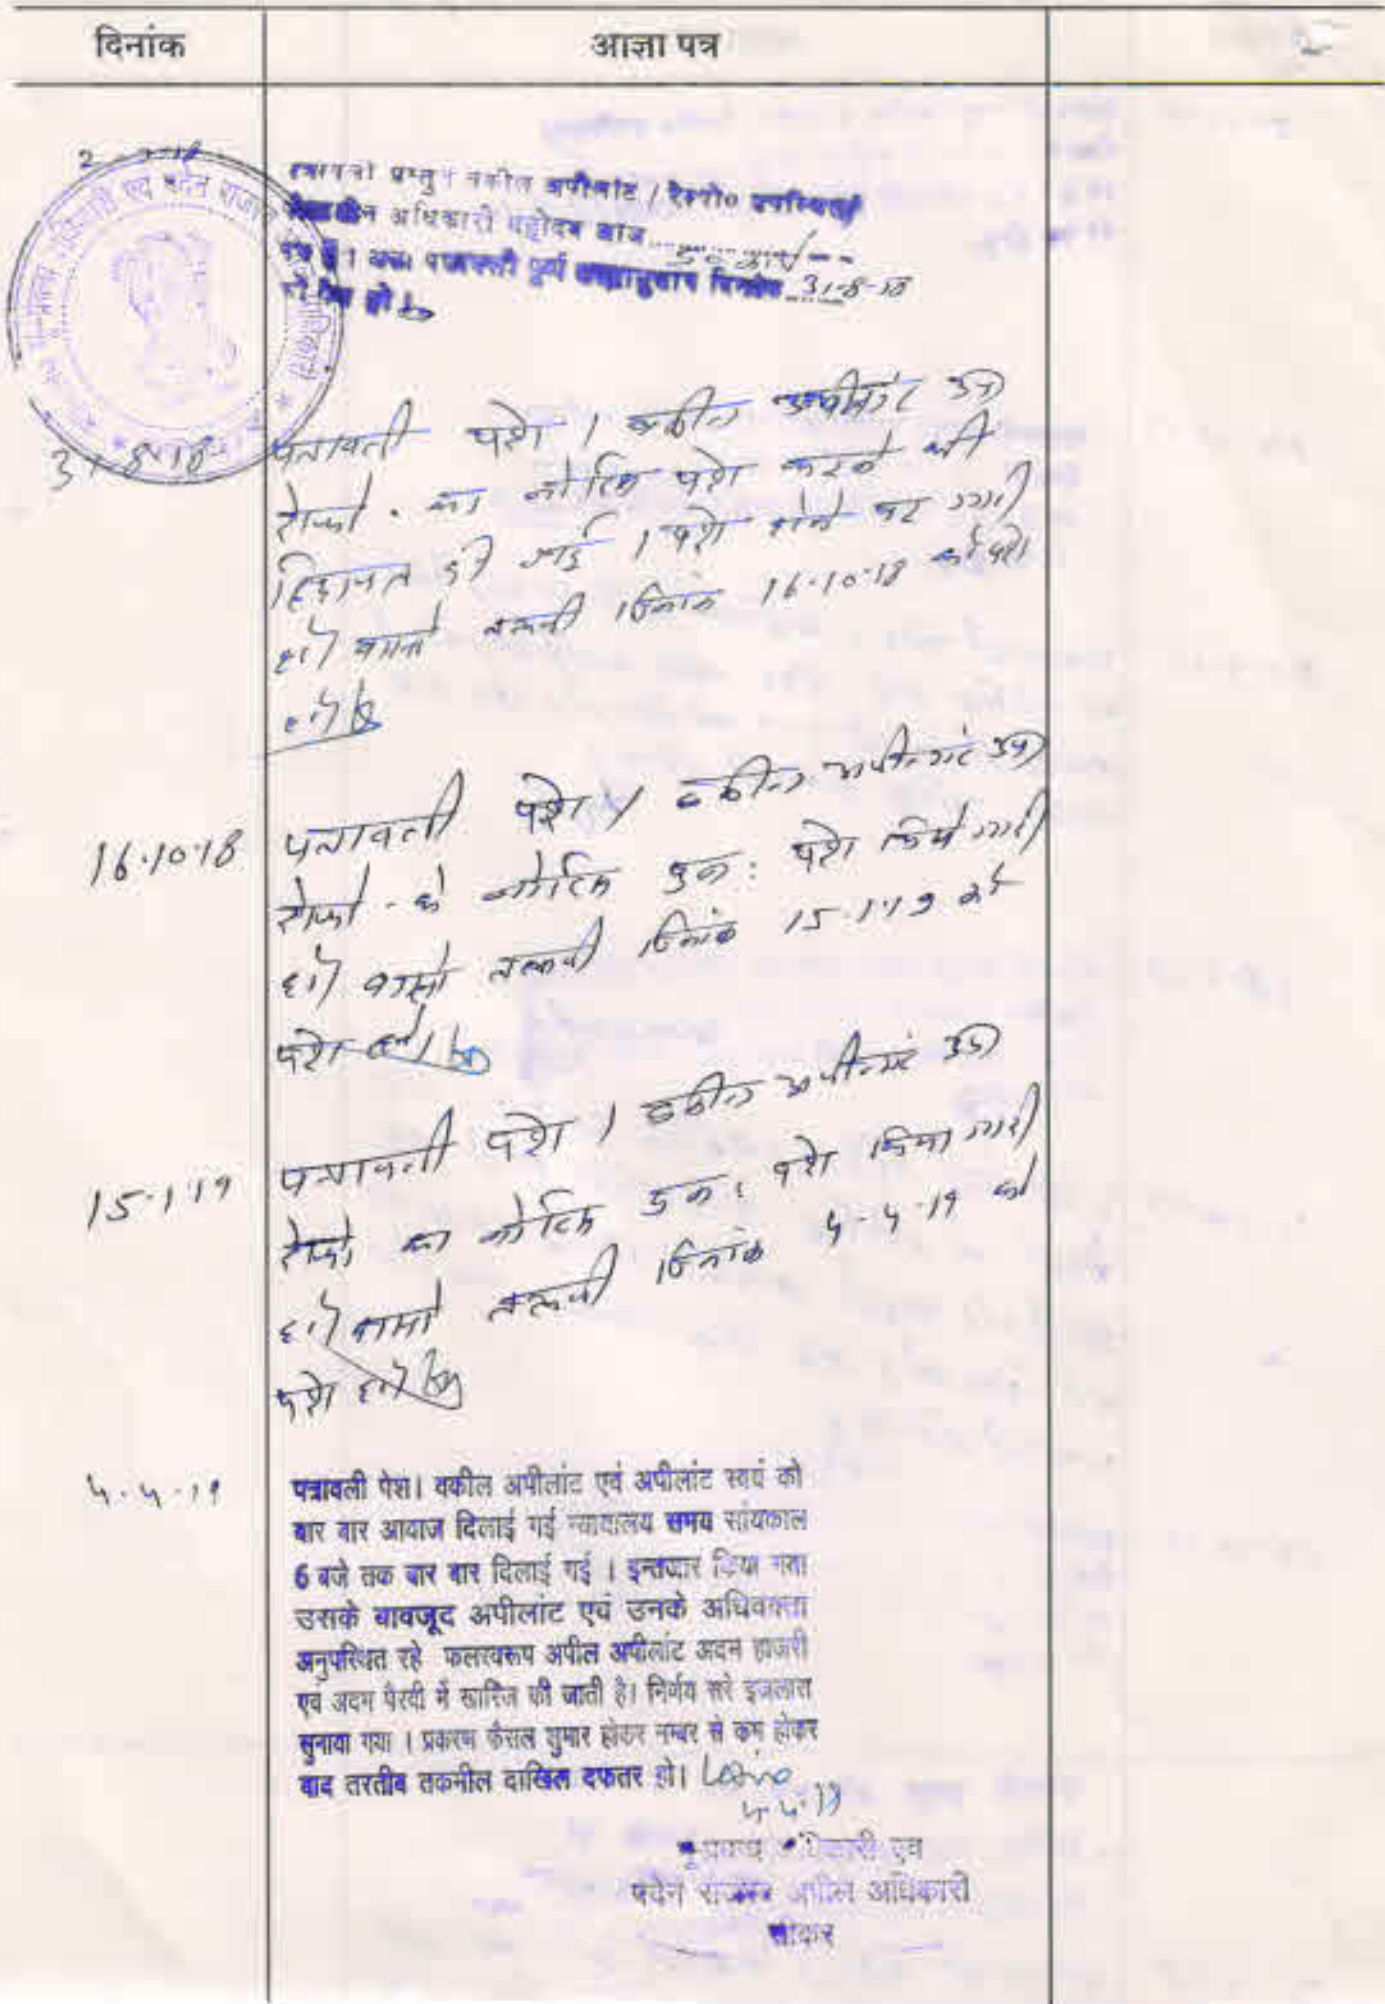 दिनांक
आज्ञा पत्र
पत्रावली प्रस्तुत वकील अपीलांट / रेस्पो० उपस्थित
अधिकारी महोदय आज
पूर्व आज्ञानुसार दिनांक 31-8-18
को पेश हो
31-8-18
पत्रावली पेश । वकील अपीलांट उप
रेस्पो. का नोटिस पेश करने की
हिदायत दी गई । पेश होने पर जारी
हो वास्ते तलबी दिनांक 16-10-18 को पेश
हो
16-10-18
पत्रावली पेश । वकील अपीलांट उप
रेस्पो. के नोटिस पुन: पेश किये जारी
हो वास्ते तलबी दिनांक 15-1-19 को
पेश हो
15-1-19
पत्रावली पेश । वकील अपीलांट उप
रेस्पो का नोटिस पुन: पेश किया जारी
हो वास्ते तलबी दिनांक 4-4-19 को
पेश हो
4-4-19
पत्रावली पेश। वकील अपीलांट एवं अपीलांट स्वयं को
बार बार आवाज दिलाई गई न्यायालय समय सांयकाल
6 बजे तक बार बार दिलाई गई । इन्तजार किया गया
उसके बावजूद अपीलांट एवं उनके अधिवक्ता
अनुपस्थित रहे फलस्वरूप अपील अपीलांट अदम हाजरी
एवं अदम पैरवी में खारिज की जाती है। निर्णय सरे इजलास
सुनाया गया । प्रकरण फैसल शुमार होकर नम्बर से कम होकर
बाद तरतीब तकमील दाखिल दफतर हो।
4-4-19
भू-प्रबन्ध अधिकारी एवं
पदेन राजस्व अपील अधिकारी
सीकर